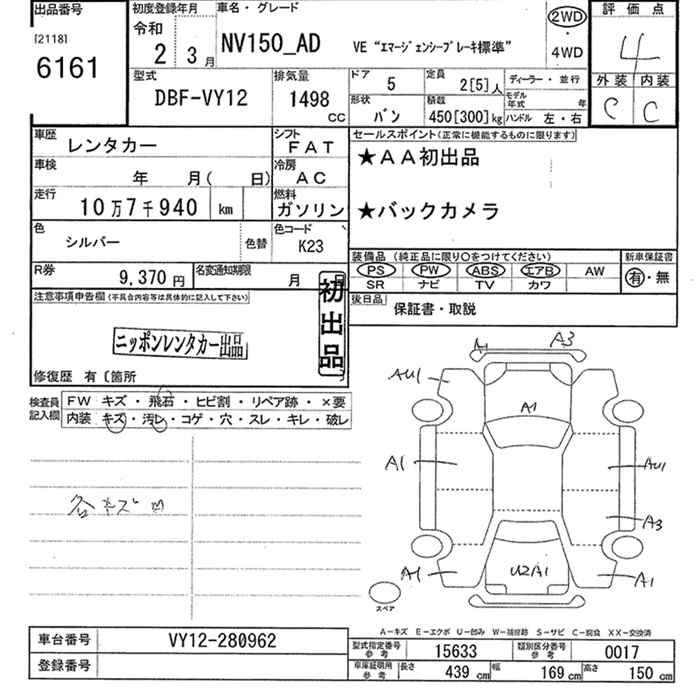 出品番号
[2118]
6161
初度登録年月
令和
2 3月
車名・グレード
NV150_AD VE “エマージェンシーブレーキ標準”
2WD
・
4WD
評価点
4
外装 内装
C C
型式
DBF-VY12
排気量
1498
CC
ドア
5
定員
2[5]人
ディーラー・並行
形状
バン
積載
450[300]kg
モデル年式 年
ハンドル 左・右
車歴
レンタカー
シフト
FAT
セールスポイント(正常に機能するものに限ります)
★AA初出品
★バックカメラ
車検
年 月( 日)
冷房
AC
走行
10万7千940 km
燃料
ガソリン
色
シルバー
色替
色コード
K23
装備品 (純正品に限り〇をつけてください)
PS PW ABS エアB AW
SR ナビ TV カワ
新車保証書
有・無
R券
9,370円
名変通知期限
月 日
後日品
保証書・取説
注意事項申告欄(不具合内容等は具体的に記入して下さい)
初出品
ニッポンレンタカー出品
修復歴 有〔箇所 〕
検査員記入欄
FW キズ・飛石・ヒビ割・リペア跡・×要
内装 キズ・汚レ・コゲ・穴・スレ・キレ・破レ
各キズ凹
A1 A3
AU1
A1
A1
AU1
A3
A1
U2A1
A1
スペア
A-キズ E-エクボ U-凹ミ W-補修跡 S-サビ C-腐食 XX-交換済
車台番号
VY12-280962
登録番号
型式指定番号 参考
15633
類別区分番号 参考
0017
車庫証明用 参考
長さ 439 cm 幅 169 cm 高さ 150 cm